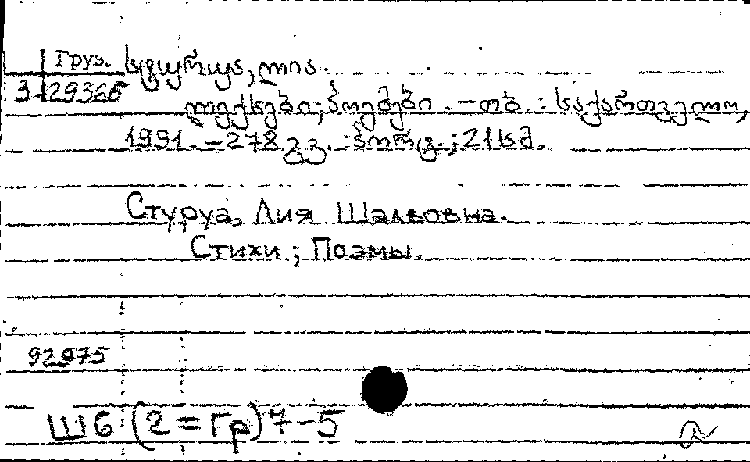 Груз. სტურუა, ლია.
3-29366
ლექსები; პოემები. – თბ. : საქართველო,
1991. – 278 გვ. : პორტ.; 21 სმ.
Стуруа, Лия Шалвовна.
Стихи; Поэмы.
92975
Ш6(2=Гр)7-5